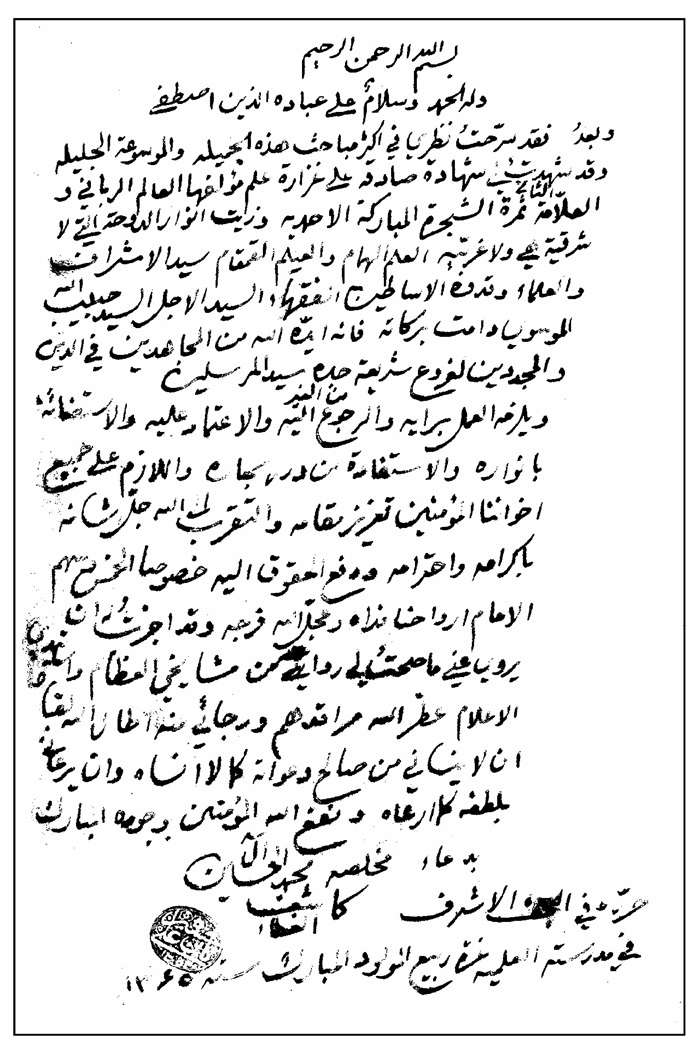 بسم الله الرحمن الرحيم
وله الحمد وسلام على عباده الذين اصطفى
وبعد فقد سرّحت نظري في اكثر مباحث هذه الجميله والموسوعة الجليله
وقد شهدت شهادة صادقة على غزارة علم مؤلفها العالم الرباني و
العلّامة الثاني ثمرة الشجرة المباركة الاحمديه وزيت انوار الدوحة التي لا
شرقية هي ولا غربيّه العلم الهمام والعيلم القمقام سيد الاشراف
والعلماء وقدوة الاساطين الفقهاء السيد الاجل السيد حبيب الله
الموسوي دامت بركاته فانه ايّده الله من المجاهدين في الدين
والمجددين لفروع شريعة جده سيد المرسلين
ويلزمه العمل برايه والرجوع من الغير اليه والاعتماد عليه والاستضائة
بانواره والاستفادة من درر بحاره واللازم على جميع
اخواننا المؤمنين تعزيز مقامه والتقرب الى الله جلّ شانه
باكرامه واحترامه ودفع الحقوق اليه خصوصا الخمس من سهم
الامام ارواحنا فداه وعجّل الله فرجه وقد اجزت له ان
يروي عني ما صحت لي روايته عن مشايخي العظام واساتيذي
الاعلام عطّر الله مراقدهم ورجائي منه اطال الله بقاه
ان لا ينساني من صالح دعواته كما لا انساه وان يرعاني
بلطفه كما ارعاه ونفع الله المؤمنين بوجوده المبارك
بدعاء مخلصه محمد الحسين آل
كاشف الغطاء
حرّره في النجف الاشرف
في مدرسته العلميه غرة ربيع المولود المبارك سنه ١٣٦٥